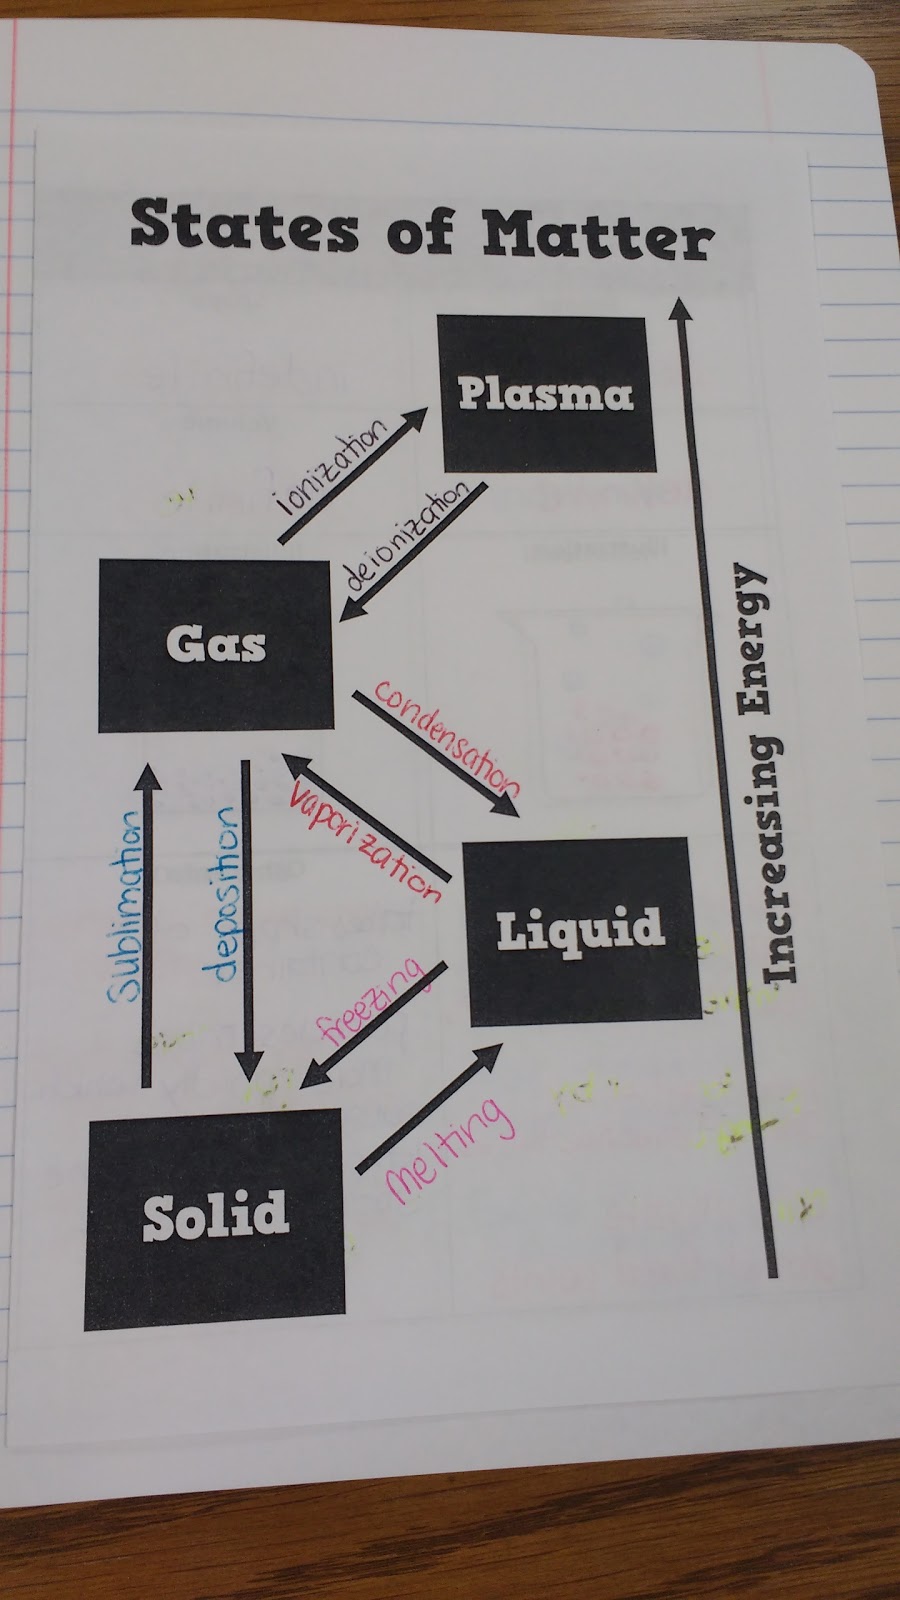 States of Matter
Plasma
ionization
deionization
Gas
condensation
vaporization
Increasing Energy
Sublimation
deposition
Liquid
freezing
melting
Solid